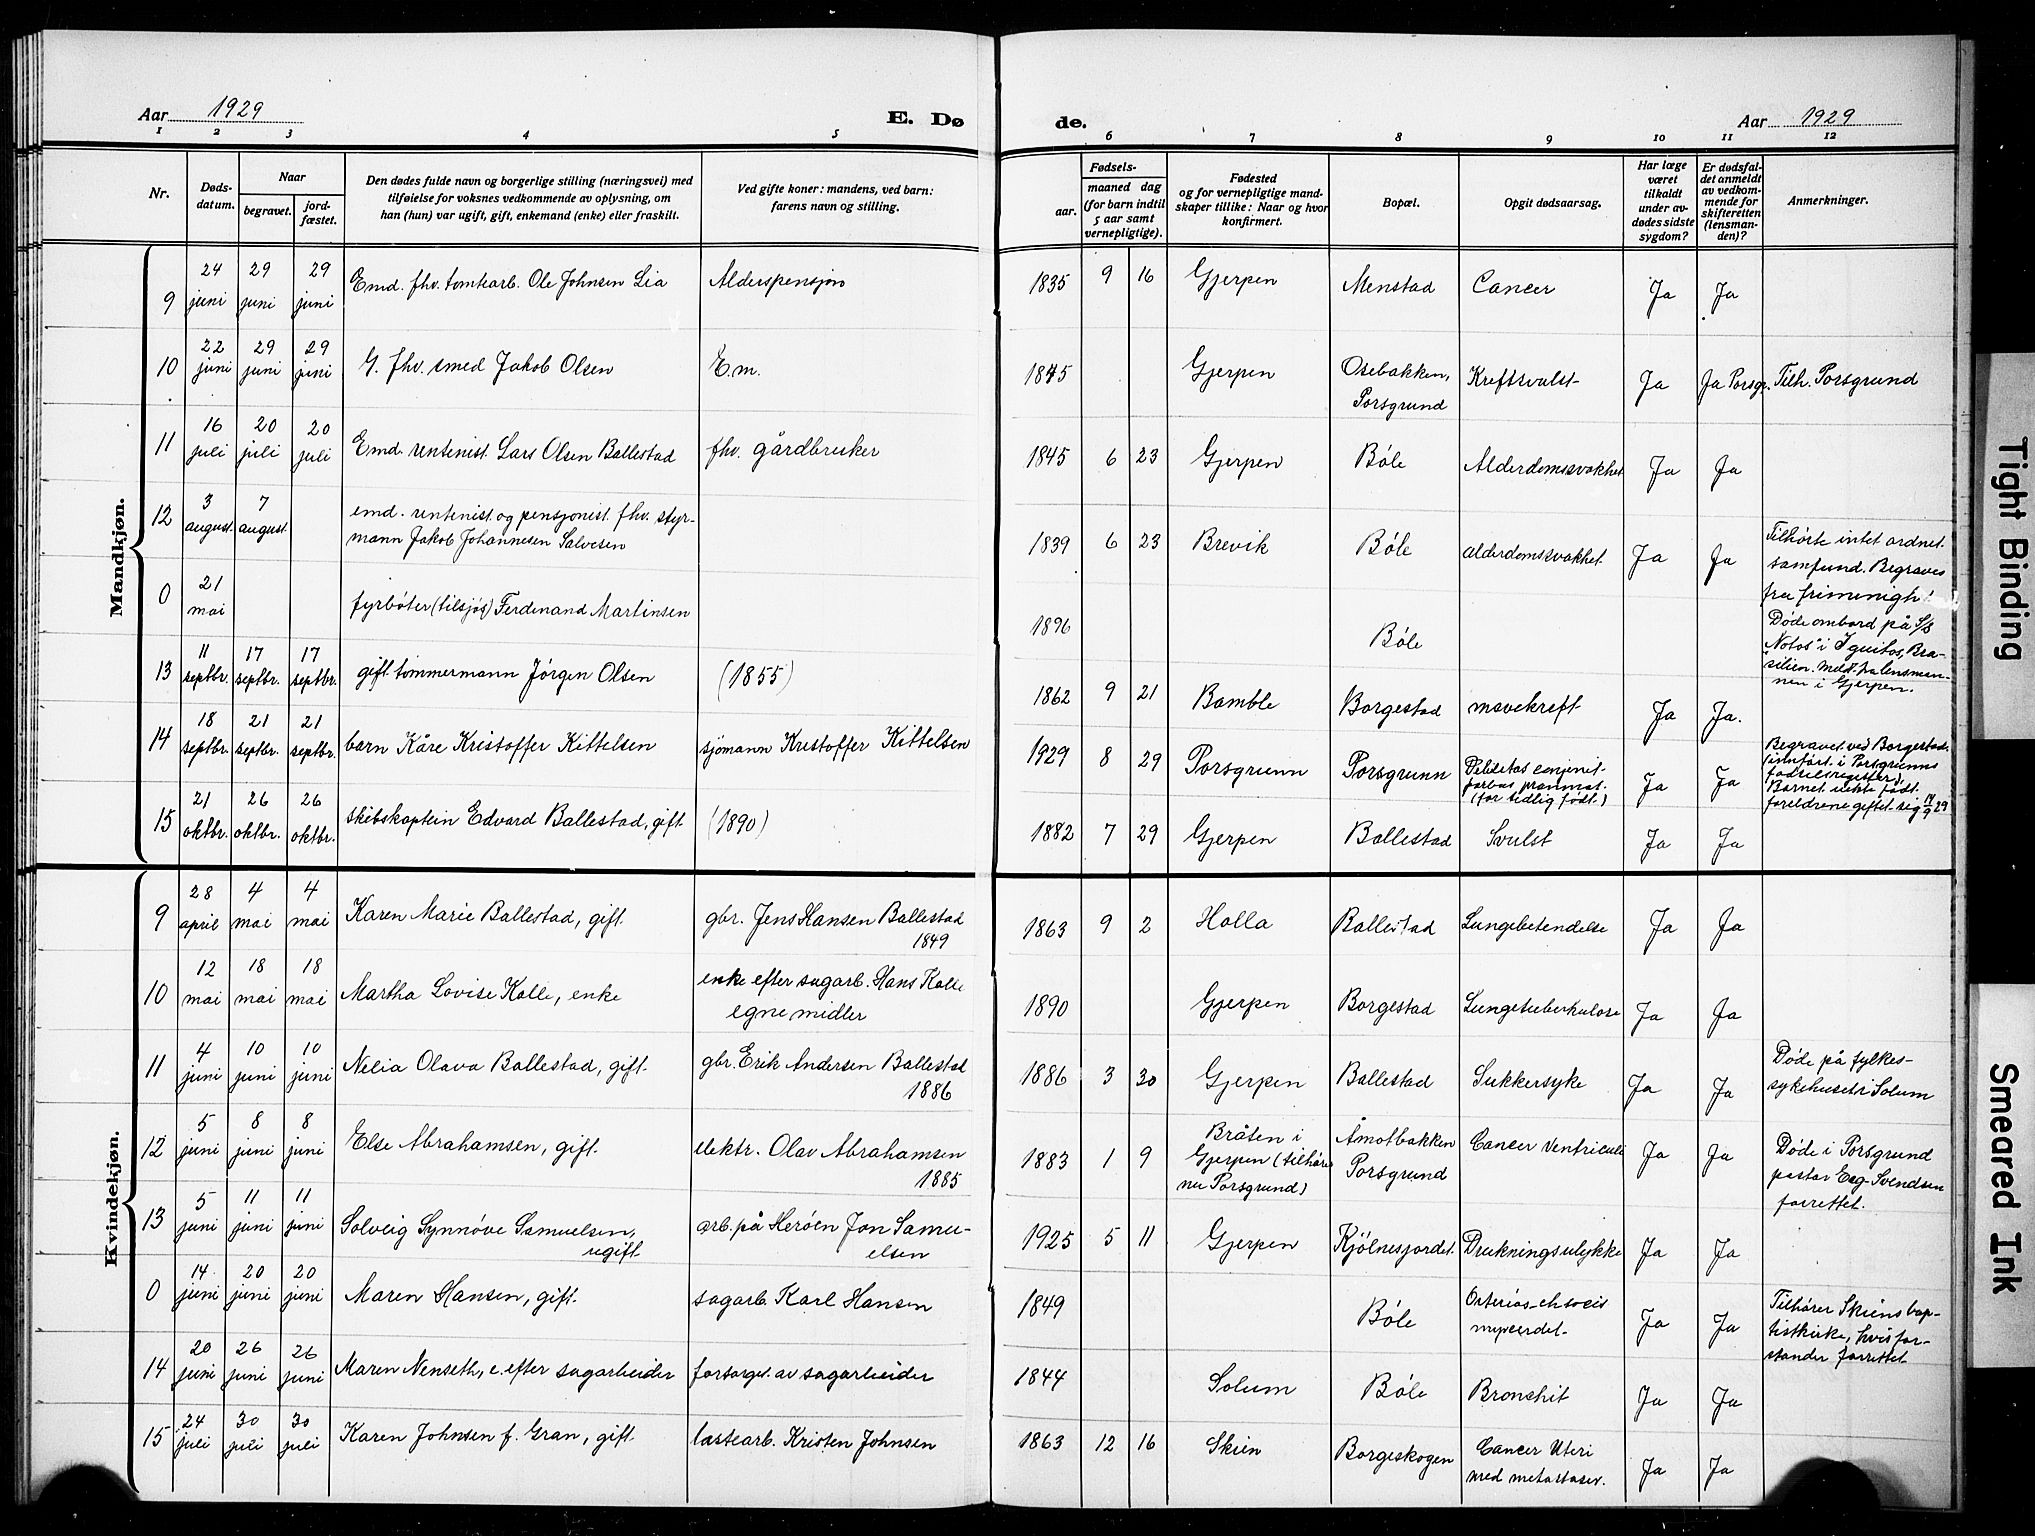 Aar 1929
E. Dø
de.
Aar 1929
1 2 3 4 5 6 7 8 9 10 11 12
Nr.
Døds-
datum.
Naar
begravet.
jord-
fæstet.
Den dødes fulde navn og borgerlige stilling (næringsvei) med
tilføielse for voksnes vedkommende av oplysning, om
han (hun) var ugift, gift, enkemand (enke) eller fraskilt.
Ved gifte koner: mandens, ved barn:
farens navn og stilling.
Fødsels-
aar.
maaned dag
(for barn indtil
5 aar samt
vernepligtige).
Fødested
og for vernepligtige mand-
skaper tillike: Naar og hvor
konfirmert.
Bopæl.
Opgit dødsaarsag.
Har læge
været
tilkaldt
under av-
dødes sidste
sygdom?
Er dødsfal-
det anmeldt
av vedkom-
mende for
skifteretten
(lensman-
den)?
Anmerkninger.
Mandkjøn.
9 24 juni 29 juni 29 juni Emd. fhv. tomtearb. Ole Johnsen Lia Alderspensjon 1835 9 16 Gjerpen Menstad Cancer Ja Ja
10 22 juni 29 juni 29 juni G. fhv. smed Jakob Olsen E.m. 1845 Gjerpen Osebakken, Porsgrund Kreftsvulst Ja Ja Porsgr. Tilh. Porsgrund
11 16 juli 20 juli 20 juli Emd. rentenist. Lars Olsen Ballestad fhv. gårdbruker 1845 6 23 Gjerpen Bøle Alderdomssvakhet Ja Ja
12 3 august. 7 august. emd. rentenist. og pensjonist. fhv. styr-
mann Jakob Johannesen Salvesen 1839 6 23 Brevik Bøle alderdomssvakhet. Ja Ja Tilhørte intet ordnet.
samfund. Begraves
fra frimenigh.
0 21 mai fyrbøter (tilsjøs) Ferdinand Martinsen 1896 Bøle Døde ombord på S/S
"Notos" i Iquitos, Bra-
silien. Meldt fra lensman-
nen i Gjerpen.
13 11 septbr. 17 septbr. 17 septbr. gift tømmermann Jørgen Olsen (1855) 1862 9 21 Bamble Borgestad mavekreft Ja Ja.
14 18 septbr. 21 septbr. 21 septbr. barn Kåre Kristoffer Kittelsen sjømann Kristoffer Kittelsen 1929 8 29 Porsgrunn Porsgrunn Debilitas conjenit.
(for tidlig født.) Ja Ja Begravet ved Borgestad.
(innført. i Porsgrunns
fødselsregister).
Barnet uekte født.
foreldrene giftet sig 14/9 29
15 21 oktbr. 26 oktbr. 26 oktbr. skibskaptein Edvard Ballestad, gift (1890) 1882 7 29 Gjerpen Ballestad Svulst Ja Ja
Kvindekjøn.
9 28 april 4 mai 4 mai Karen Marie Ballestad, gift. gbr. Jens Hansen Ballestad
1849 1863 9 2 Holla Ballestad Lungebetendelse Ja Ja
10 12 mai 18 mai 18 mai Martha Lovise Kolle, enke enke efter sagarb. Hans Kolle
egne midler 1890 Gjerpen Borgestad Lungetuberkulose Ja Ja
11 4 juni 10 juni 10 juni Nilia Olava Ballestad, gift. gbr. Erik Andersen Ballestad
1886 1886 3 30 Gjerpen Ballestad Sukkersyke Ja Ja Døde på fylkes-
sykehuset i Solum
12 5 juni 8 juni 8 juni Else Abrahamsen, gift. elektr. Olav Abrahamsen
1885 1883 1 9 Bråten i
Gjerpen (tilhører
nu Porsgrund) Åmotbakken
Porsgrund Cancer ventriculi Ja Ja Døde i Porsgrund
pastor Esg-Svendsen
forrettet.
13 5 juni 11 juni 11 juni Solveig Synnøve Samuelsen,
ugift arb. på Herøen Jon Samu-
elsen 1925 5 11 Gjerpen Kjølnesjordet. Drukningsulykke Ja Ja
0 14 juni 20 juni 20 juni Maren Hansen, gift. sagarb. Karl Hansen 1849 Bøle Ja Ja Tilhører Skiens bap-
tistkirke, hvis for-
stander forrettet
14 20 juni 26 juni 26 juni Maren Nenseth, e. efter sagarbeider forsørget av sagarbeider 1844 Solum Bøle Bronchit Ja Ja
15 24 juli 30 juli 30 juli Karen Johnsen f. Gran, gift. lastearb. Kristen Johnsen 1863 12 16 Skien Borgeskogen Cancer Uteri
med metastaser. Ja Ja
Tight Binding
Smeared Ink